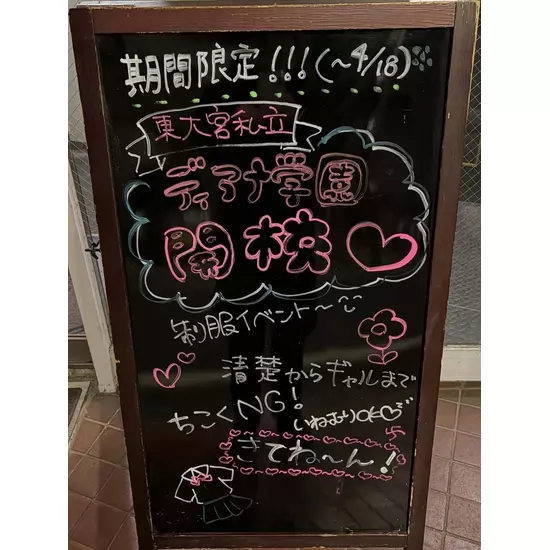 期間限定!!!(~4/18)
東大宮私立
ディアナ学園
開校
制服イベント~
清楚からギャルまで
ちこくNG!
いねむりOK
きてね~ん!